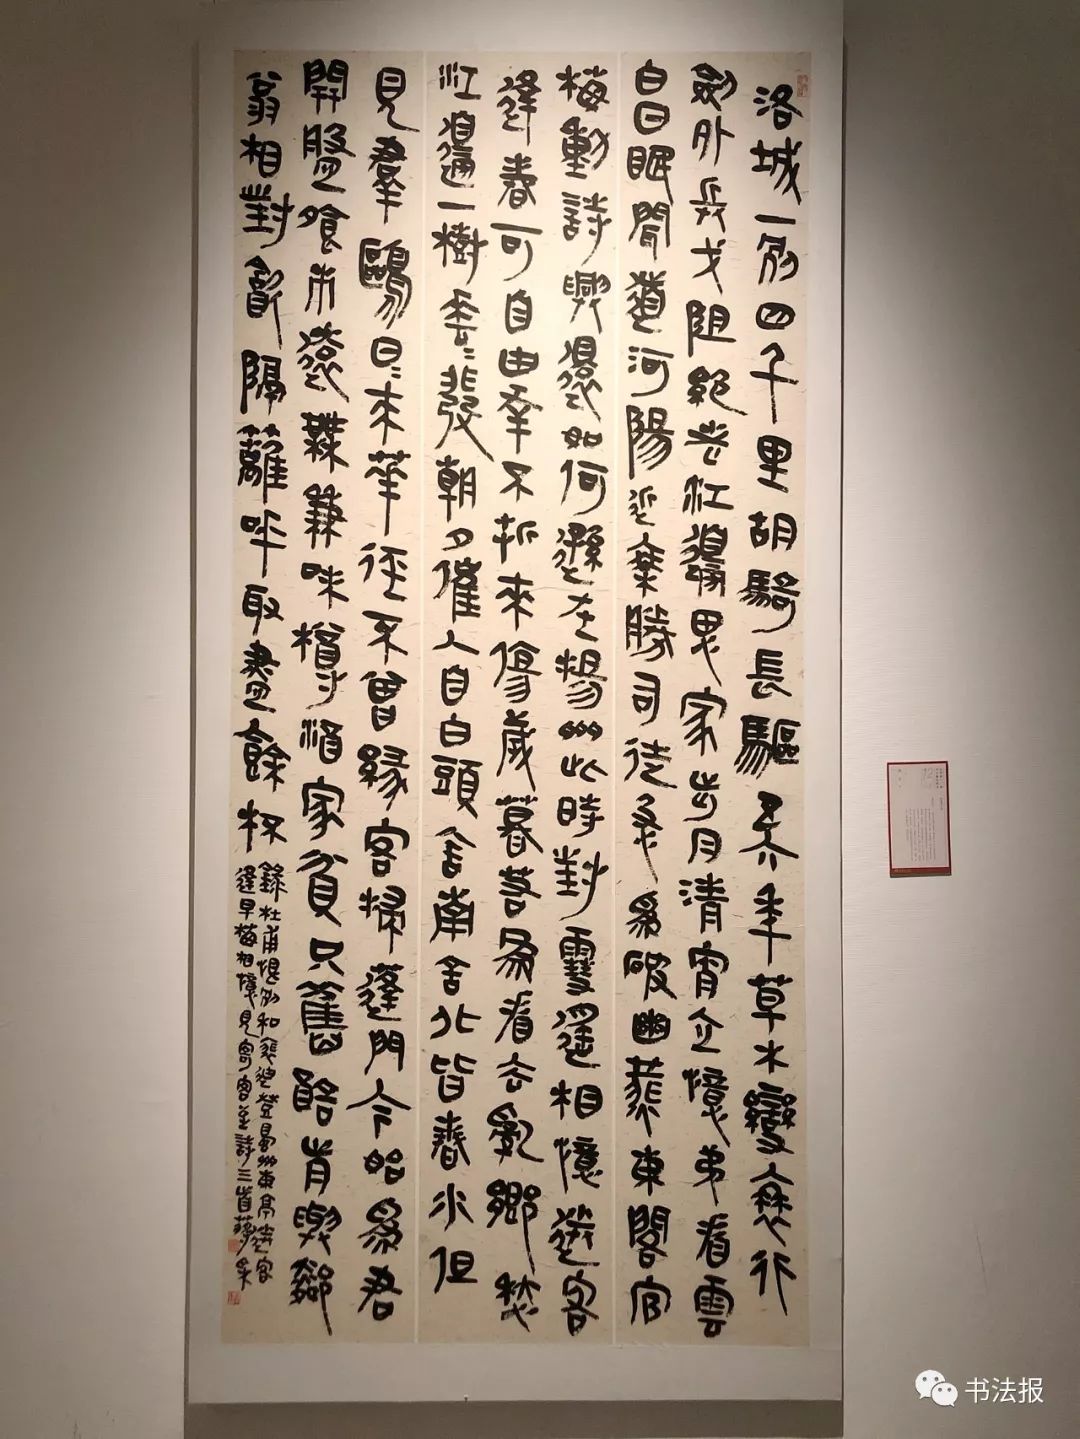 洛城一別四千里胡騎長驅五六年草木變衰行
劍外兵戈阻絕老江邊思家步月清宵立憶弟看雲
白日眠聞道河陽近乘勝司徒急為破幽燕東閣官
梅動詩興還如何遜在楊州此時對雪遙相憶送客
逢春可自由幸不折來傷歲暮若為看去亂鄉愁
江邊一樹垂垂發朝夕催人自白頭舍南舍北皆春水但
見群鷗日日來華徑不曾緣客掃蓬門今始為君
開盤飧市遠無兼味樽酒家貧只舊醅肯與鄰
翁相對飲隔籬呼取盡餘杯
錄杜甫恨別和裴迪登蜀州東亭送客
逢早梅相憶見寄客至詩三首
书法报